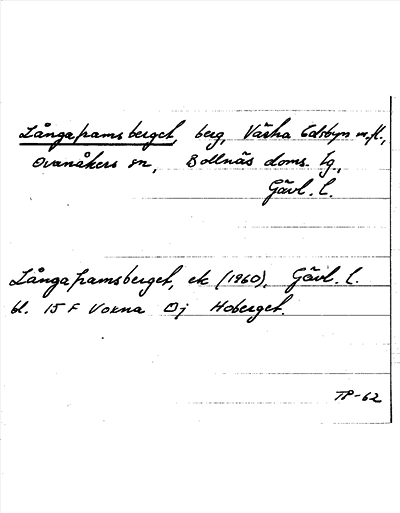 Långahamsberget, berg, Västra Edsbyn m.fl.,
Ovanåkers sn, Bollnäs doms. tg.,
Gävl. l.
Långahamsberget, ek (1960), Gävl. l.
bl. 15 F Voxna Öj Hoberget.
TP-62